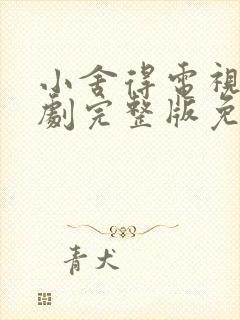 小舍得電視
劇完整版免
青犬